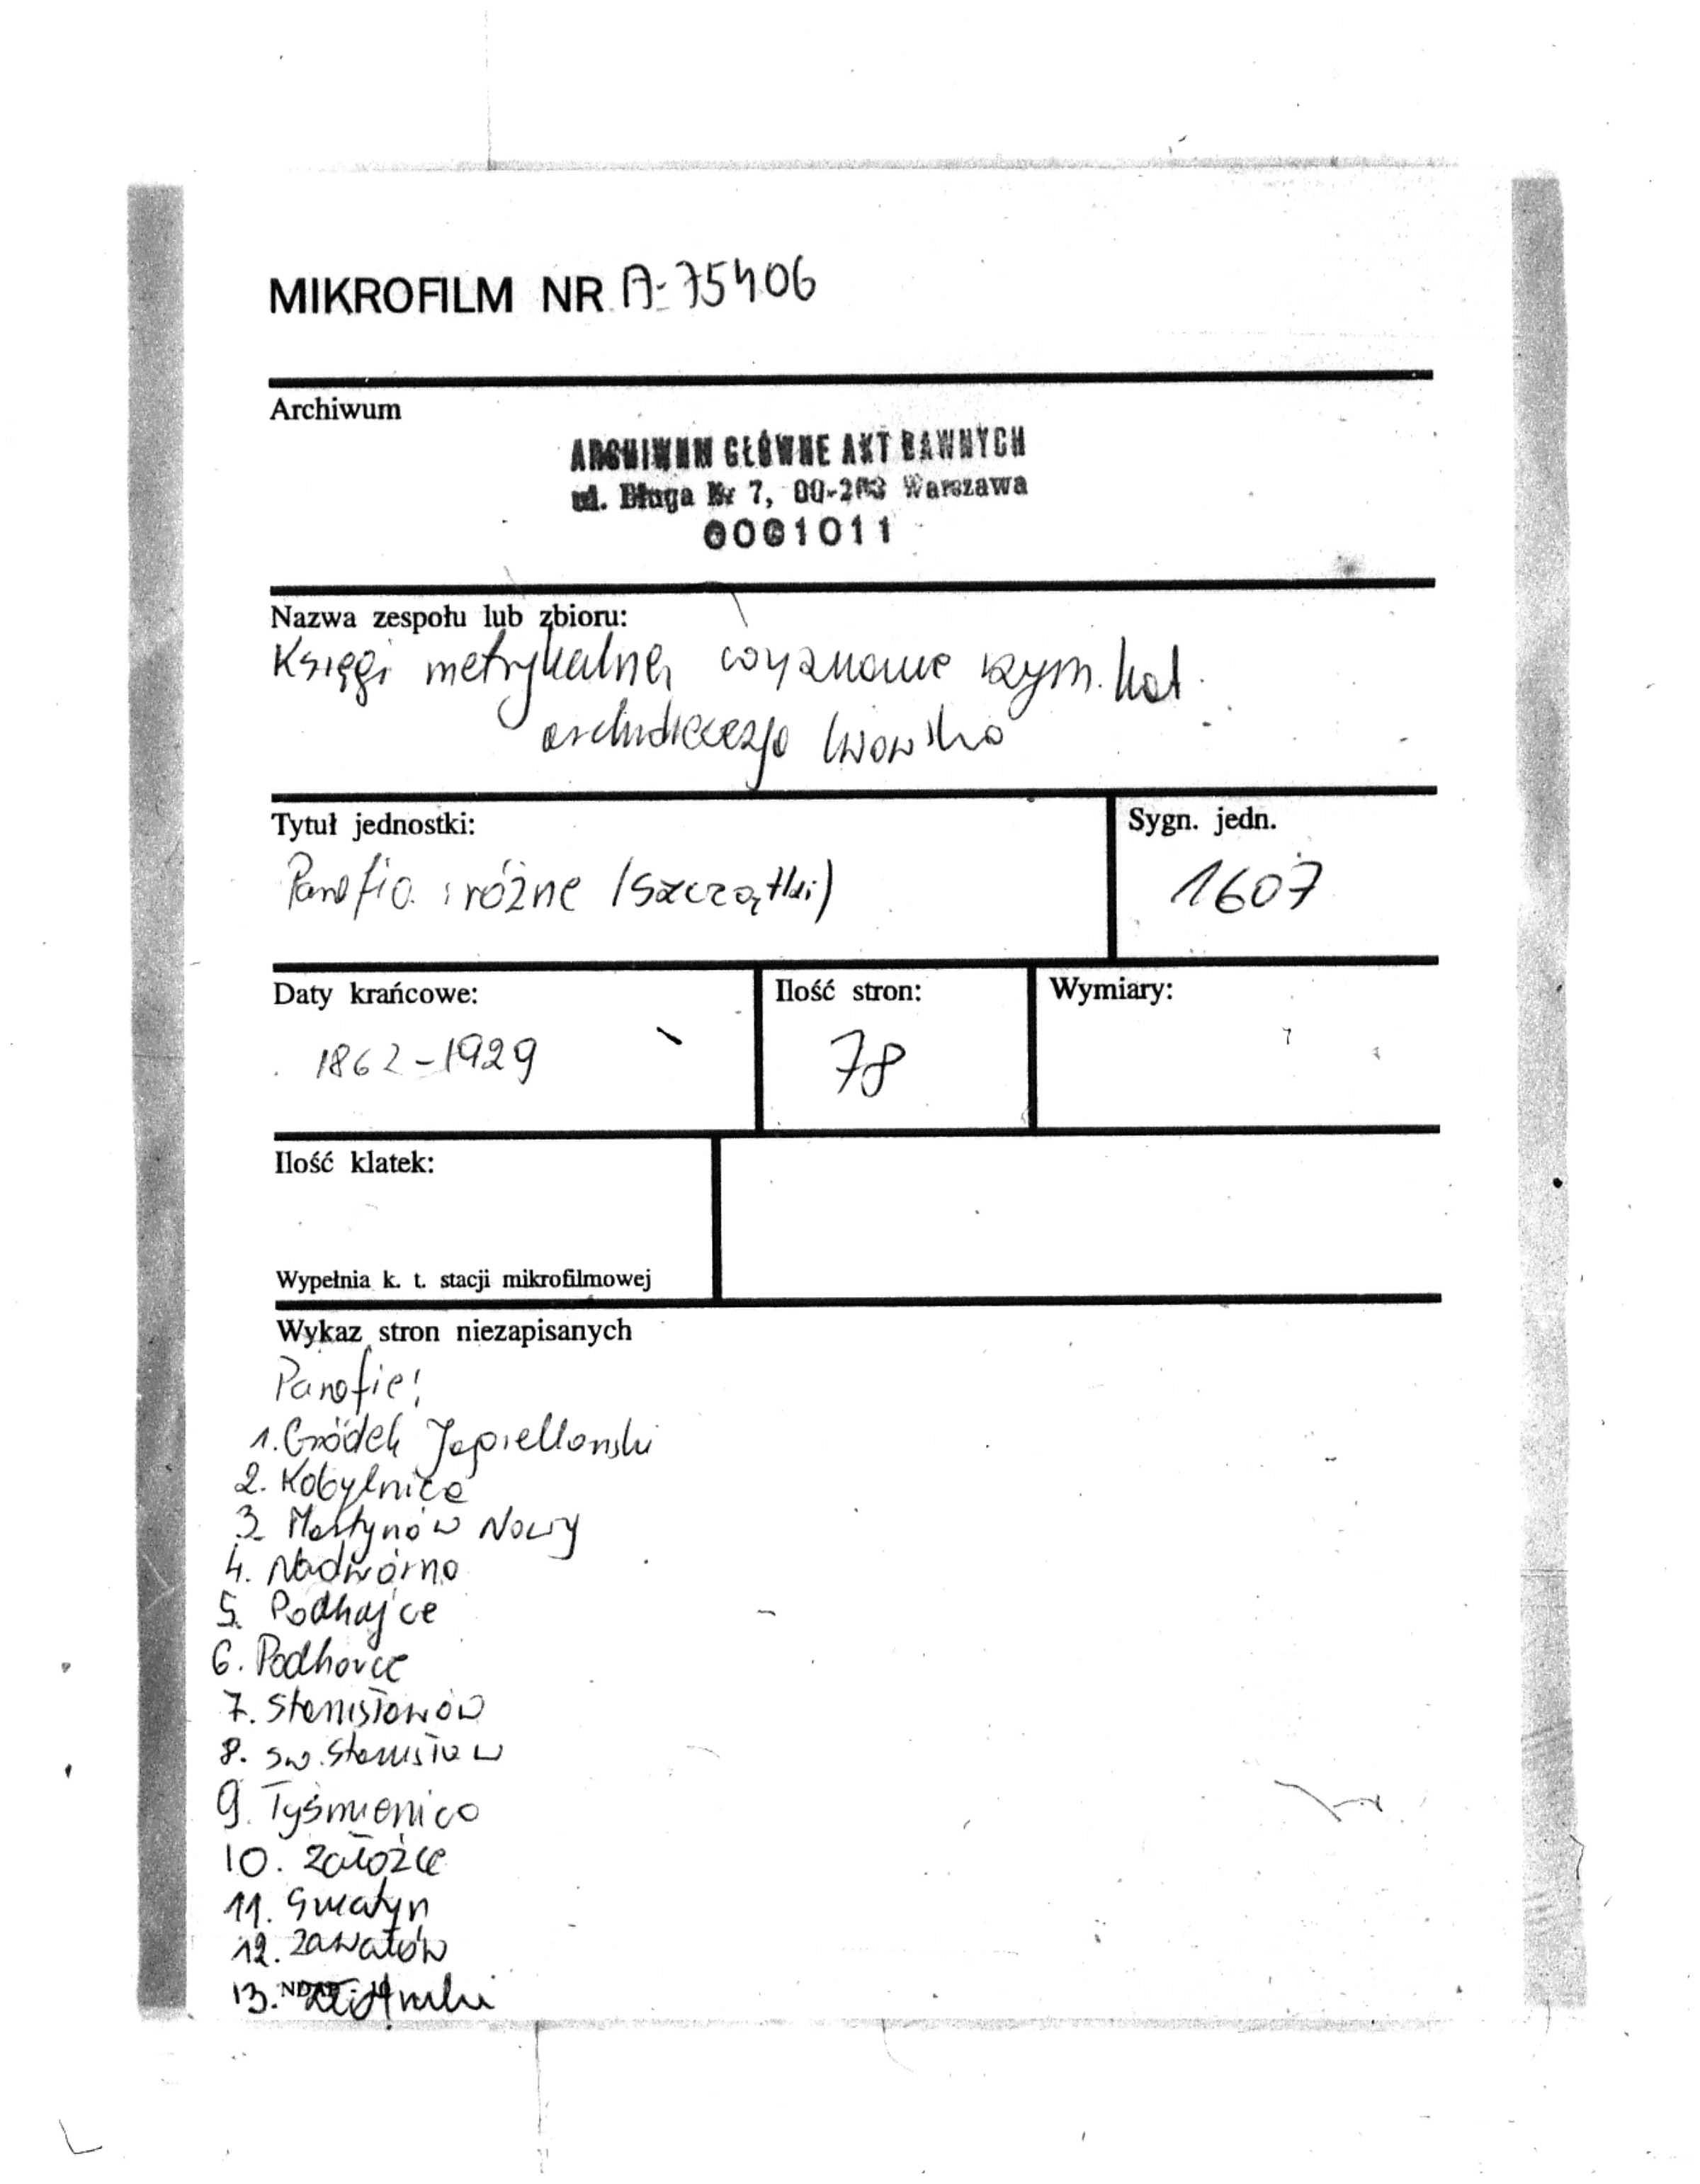 MIKROFILM NR A-75406
Archiwum
ARCHIWUM GŁÓWNE AKT DAWNYCH
ul. Długa Nr 7, 00-263 Warszawa
0001011
Nazwa zespołu lub zbioru:
Księgi metrykalne, wyznanie rzym. kat.
archidiecezja lwowska
Tytuł jednostki:
Sygn. jedn.
Parafia: różne (szczątki)
1607
Daty krańcowe:
Ilość stron:
Wymiary:
1862-1929
78
Ilość klatek:
Wypełnia k. t. stacji mikrofilmowej
Wykaz stron niezapisanych
Parafie:
1. Gródek Jagielloński
2. Kobylnica
3. Martynów Nowy
4. Nadwórna
5. Podhajce
6. Podhorce
7. Stanisławów
8. św. Stanisław
9. Tyśmienica
10. Załoźce
11. Śniatyn
12. Zawałów
13.